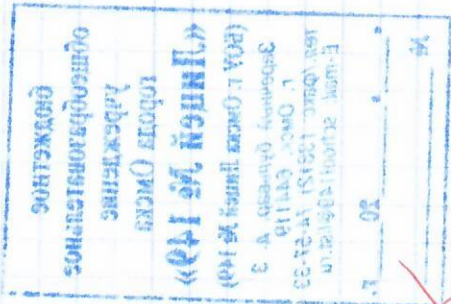 бюджетное
общеобразовательное
учреждение
города Омска
«Лицей № 149»
(БОУ г. Омска Лицей № 149)
Заречный бульвар д. 3
г. Омск, 644119
тел./факс (3812) 74-57-33
E-mail
№
20 г.